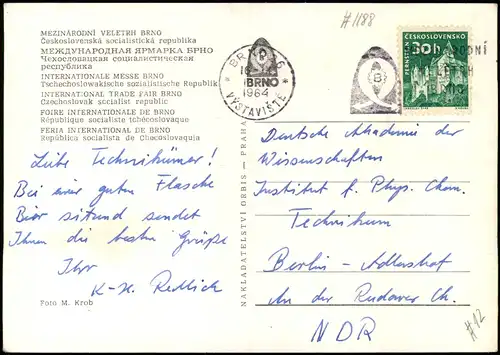 MEZINÁRODNÍ VELETRH BRNO
Československá socialistická republika
МЕЖДУНАРОДНАЯ ЯРМАРКА БРНО
Чехословацкая социалистическая
республика
INTERNATIONALE MESSE BRNO
Tschechoslowakische sozialistische Republik
INTERNATIONAL TRADE FAIR BRNO
Czechoslovak socialist republic
FOIRE INTERNATIONALE DE BRNO
République socialiste tchécoslovaque
FERIA INTERNATIONAL DE BRNO
República socialista de Checoslovaquia
Liebe Technikümer!
Bei einer guten Flasche
Bier sitzend sendet
Ihnen die besten Grüße
Ihr
K-H. Redlich
Foto M. Krob
NAKLADATELSTVÍ ORBIS — PRAHA
#1188
BRNO 16
BRNO
1964
VÝSTAVIŠTĚ
ČESKOSLOVENSKO
30h
PERNŠTEJN
Deutsche Akademie der
Wissenschaften
Institut f. Phys. Chem.
Technikum
Berlin - Adlershof
An der Rudower Ch.
NDR
#12